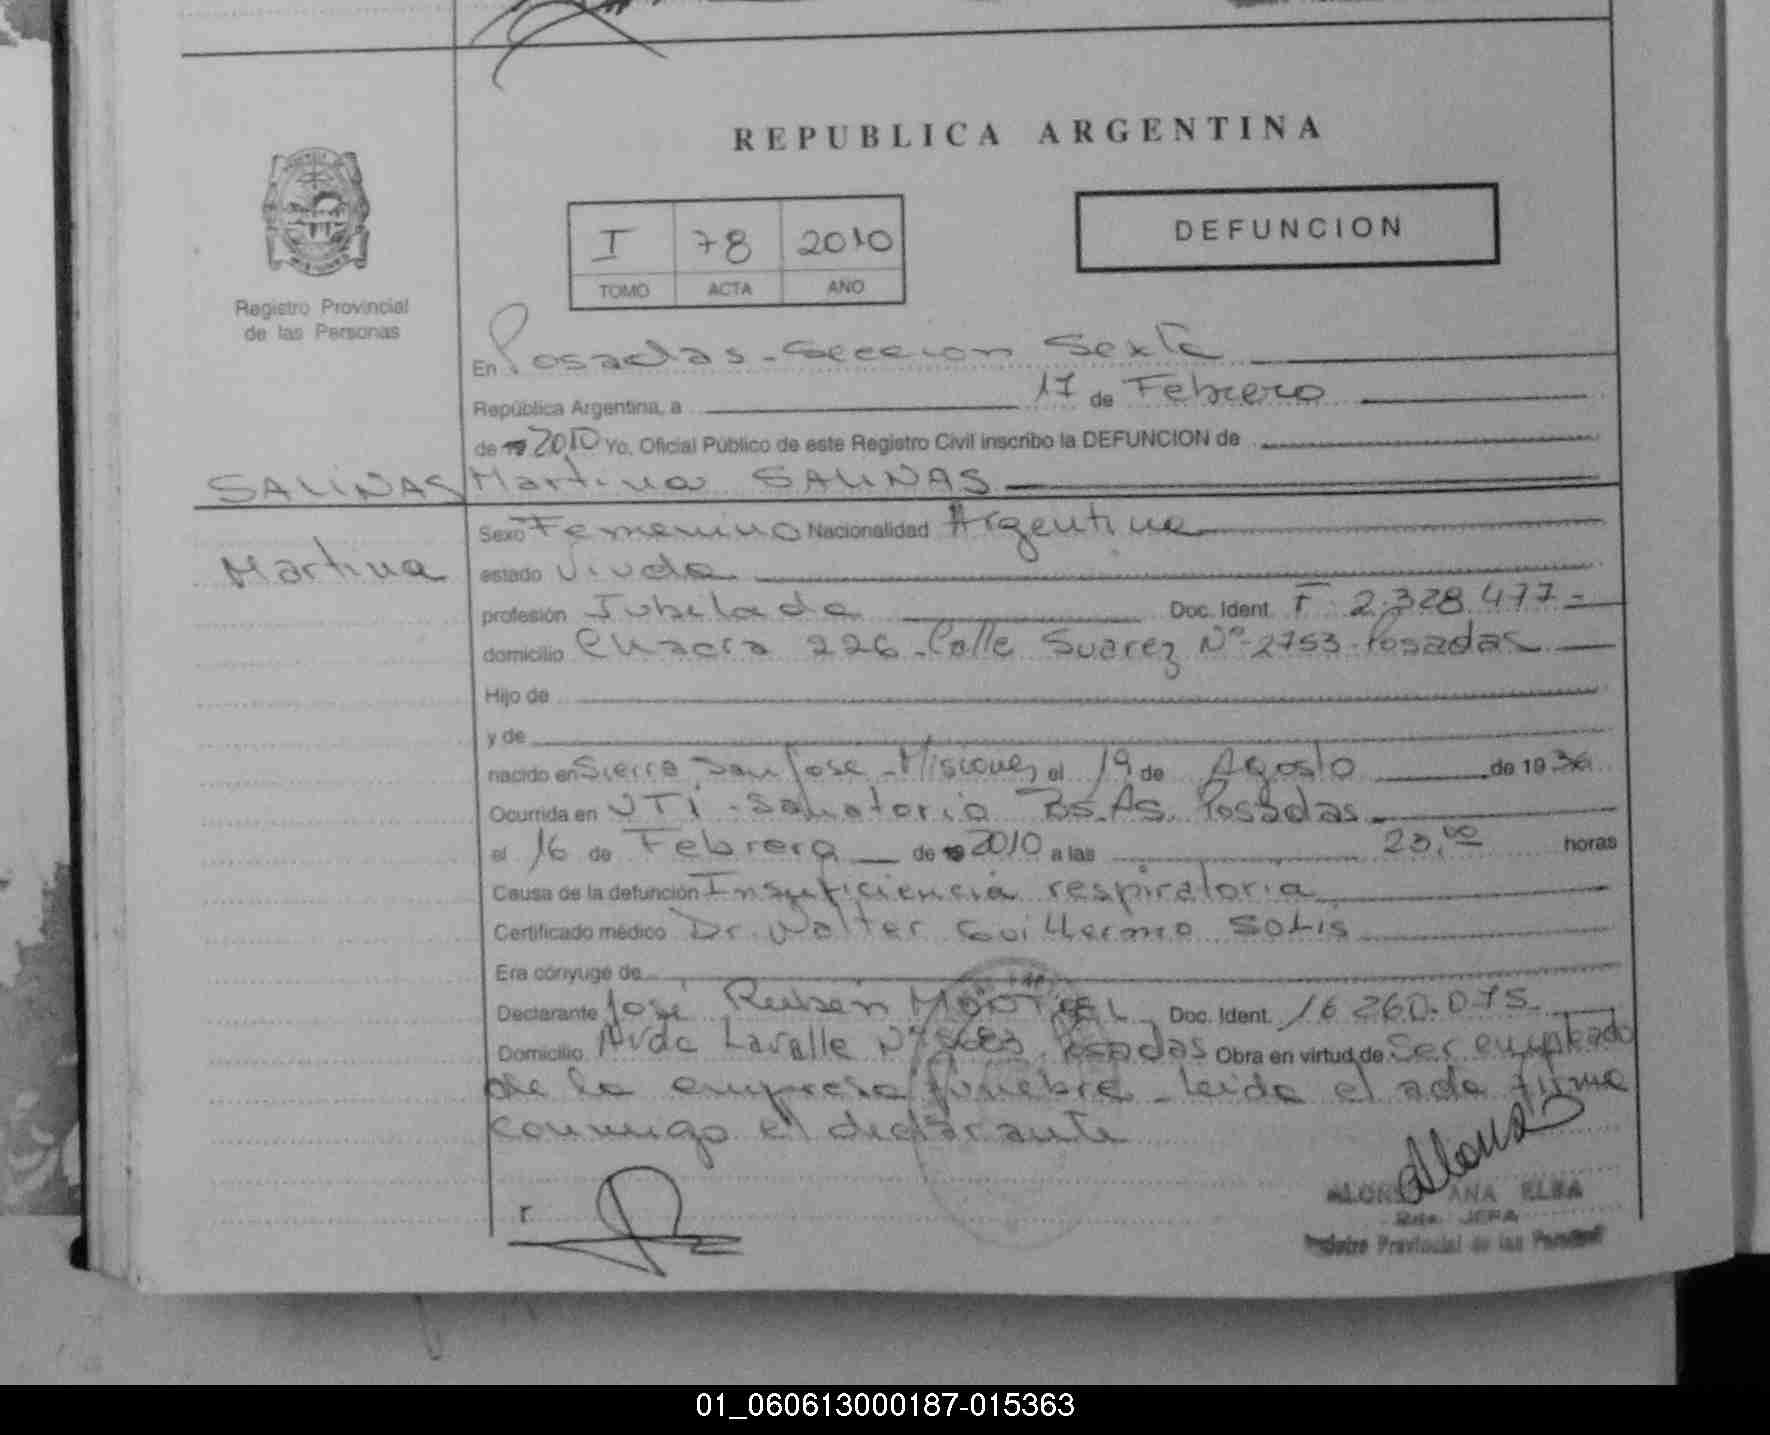 REPUBLICA ARGENTINA
I 78 2010
TOMO ACTA AÑO
DEFUNCION
Registro Provincial
de las Personas
En Posadas - Seccion Sexta
República Argentina, a 17 de Febrero
de 19 2010 Yo, Oficial Público de este Registro Civil inscribo la DEFUNCION de
SALINAS Martina SALINAS
Martina
Sexo Femenino Nacionalidad Argentina
estado Viuda
profesión Jubilada Doc. Ident. F 2.328.477=
domicilio Chacra 226 - Calle Suarez Nº 2753 - Posadas
Hijo de
y de
nacido en Sierra San Jose - Misiones el 19 de Agosto de 19 36
Ocurrida en UTI - Sanatorio Bs. As. Posadas
el 16 de Febrero de 19 2010 a las 23,00 horas
Causa de la defunción Insuficiencia respiratoria
Certificado médico Dr. Walter Guillermo SOLIS
Era cónyuge de
Declarante José Rubén Doc. Ident. 16.260.075
Domicilio Avda Lavalle Nº Posadas Obra en virtud de Ser empleado
de la empresa funebre - leida el acta firma
conmigo el declarante
ALONSO ANA ELBA
JEFA
Registro Provincial de las Personas
01_060613000187-015363